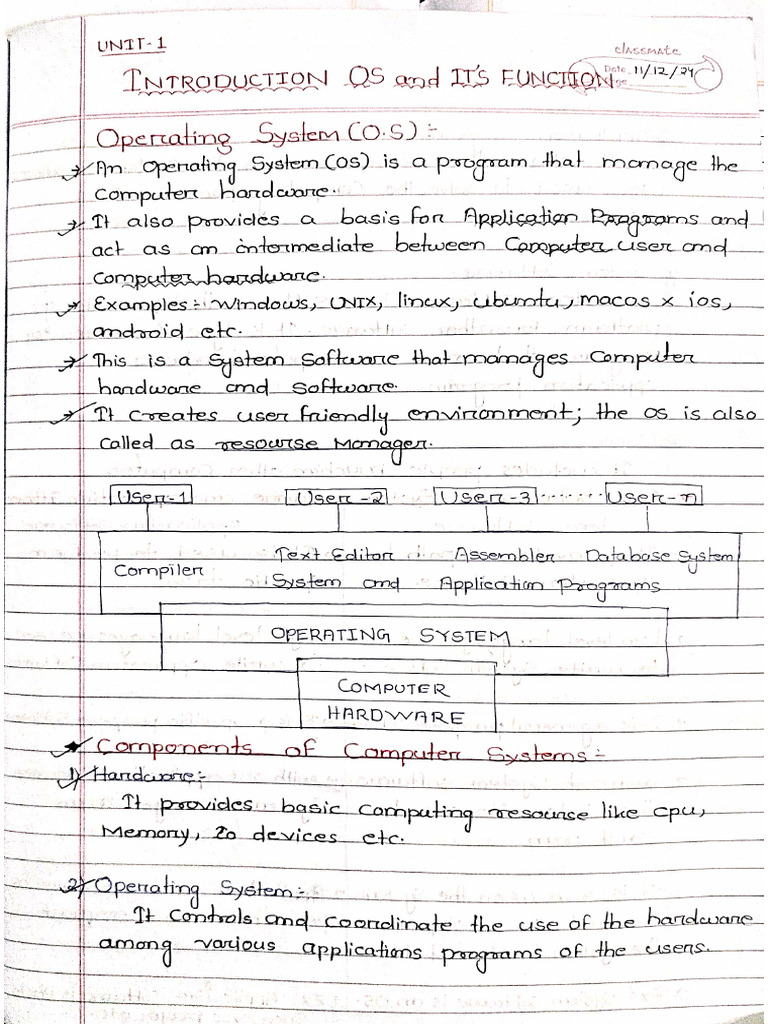 UNIT-1
classmate
Date 11/12/24
INTRODUCTION OS and IT'S FUNCTION
Operating System (O.S) :-
→ An Operating System (OS) is a program that manage the
computer hardware.
→ It also provides a basis for Application Programs and
act as an intermediate between Computer user and
computer hardware.
→ Examples:- Windows, UNIX, linux, ubuntu, macos x ios,
android etc.
→ This is a System Software that manages Computer
hardware and Software.
→ It creates user friendly environment; the os is also
called as resourse Manager.
User-1 User-2 User-3 ........ User-n
Text Editor Assembler Database System
Compiler System and Application Programs
OPERATING SYSTEM
COMPUTER
HARDWARE
★ Components of Computer Systems:-
1) Hardware:-
It provides basic computing resourse like cpu,
Memory, Io devices etc.
2) Operating System:-
It controls and coordinate the use of the hardware
among various applications programs of the users.